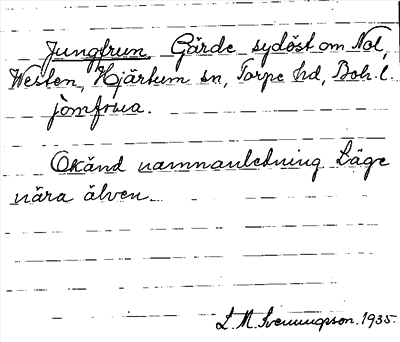 Jungfrun Gärde sydöst om Nol,
Westen, Hjärtum sn, Torpe hd, Boh. l.
jòmfrua.
Okänd namnanledning Läge
nära älven.
L. M. Svenungsson. 1935.